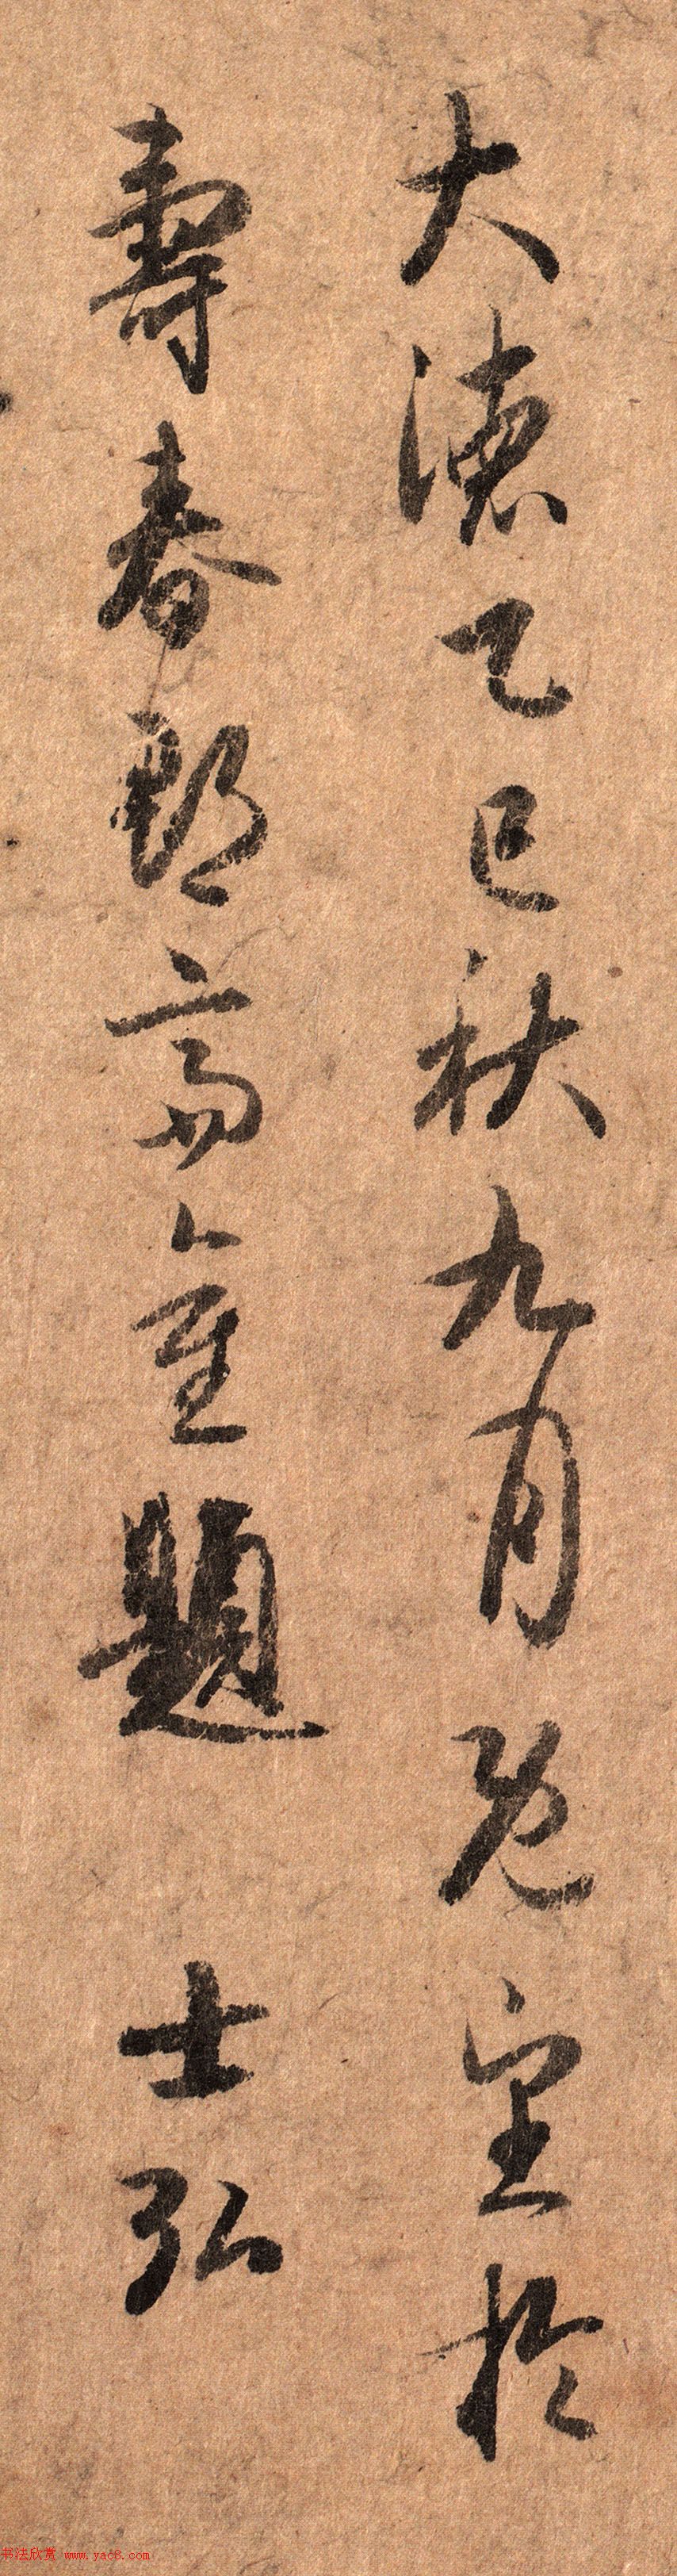 大德乙巳秋九月既望於
壽春郡齋重題 士弘
书法欣赏 www.yac8.com